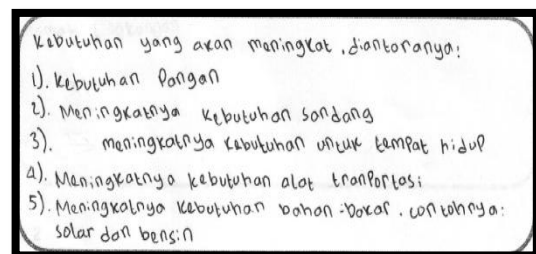 Kebutuhan yang akan meningkat, diantaranya:
1). Kebutuhan Pangan
2). Meningkatnya Kebutuhan Sandang
3). meningkatnya kebutuhan untuk tempat hidup
4). Meningkatnya kebutuhan alat tranportasi
5). Meningkatnya kebutuhan bahan-bakar. contohnya:
solar dan bensin